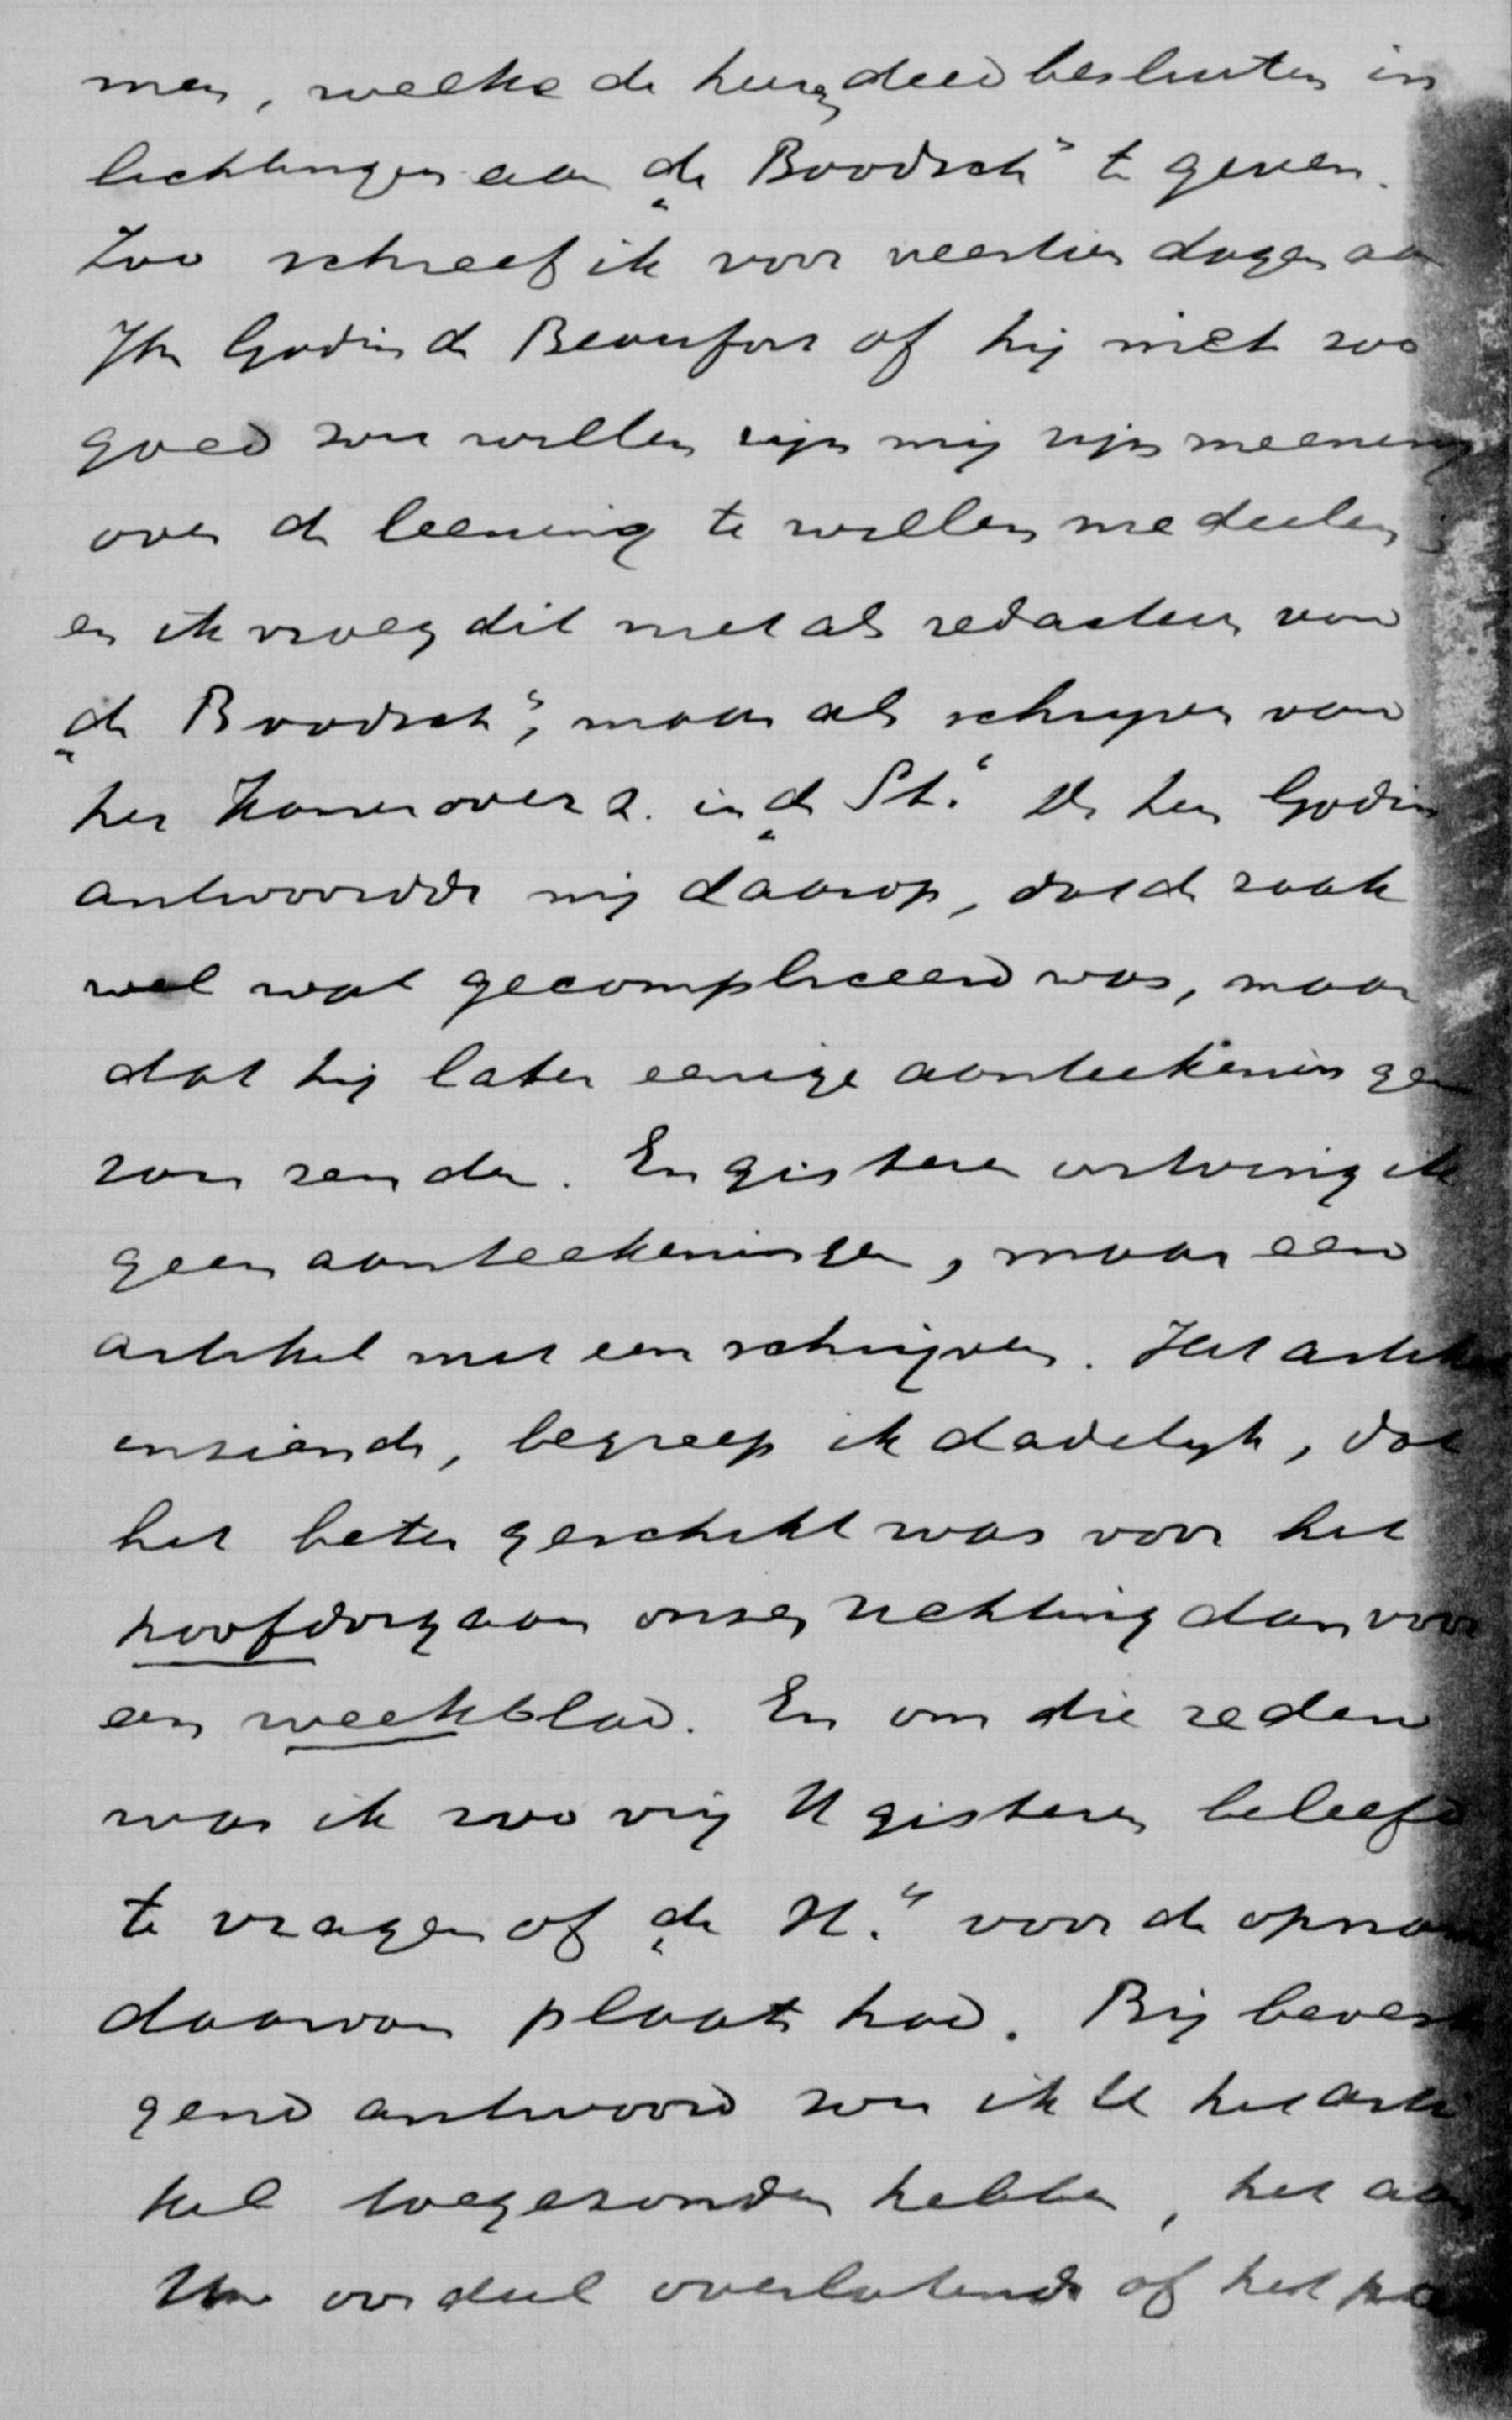 men, welke de heeren deed besluiten in
lichtingen aan „de Boodsch” te geven.
Zoo schreef ik voor veertien dagen aan
Jhr Godin de Beaufort of hij niet zoo
goed zou willen zijn mij zijn meening
over de leening te willen mededeelen;
en ik vroeg dit niet als redacteur van
„de Boodsch”, maar als schrijver van
het Kameroverz. in „de St.” De heer Godin
antwoordde mij daarop, dat de zaak
wel wat gecompliceerd was, maar
dat hij later eenige aanteekeningen
zou zenden. En gisteren ontving ik
geen aanteekeningen, maar een
artikel met een schrijven. Het artikel
inziende, begreep ik dadelijk, dat
het beter geschikt was voor het
hoofdorgaan onzer richting dan voor
een weekblad. En om die reden
was ik zoo vrij U gisteren beleefd
te vragen of „de N.” voor de opname
daarvan plaats had. Bij bevesti
gend antwoord zou ik U het arti
kel toegezonden hebben, het aan
Uw oordeel overlatende of het